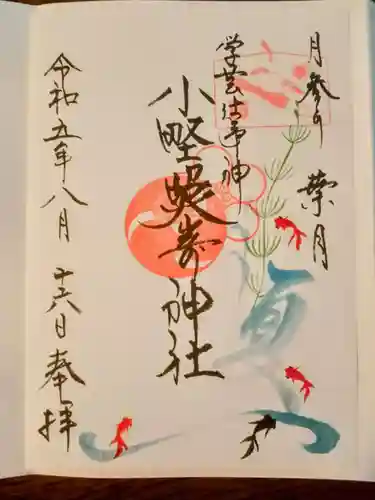 月参り 葉月
学芸仕事神
小野照崎神社
夏
令和五年八月十六日奉拝